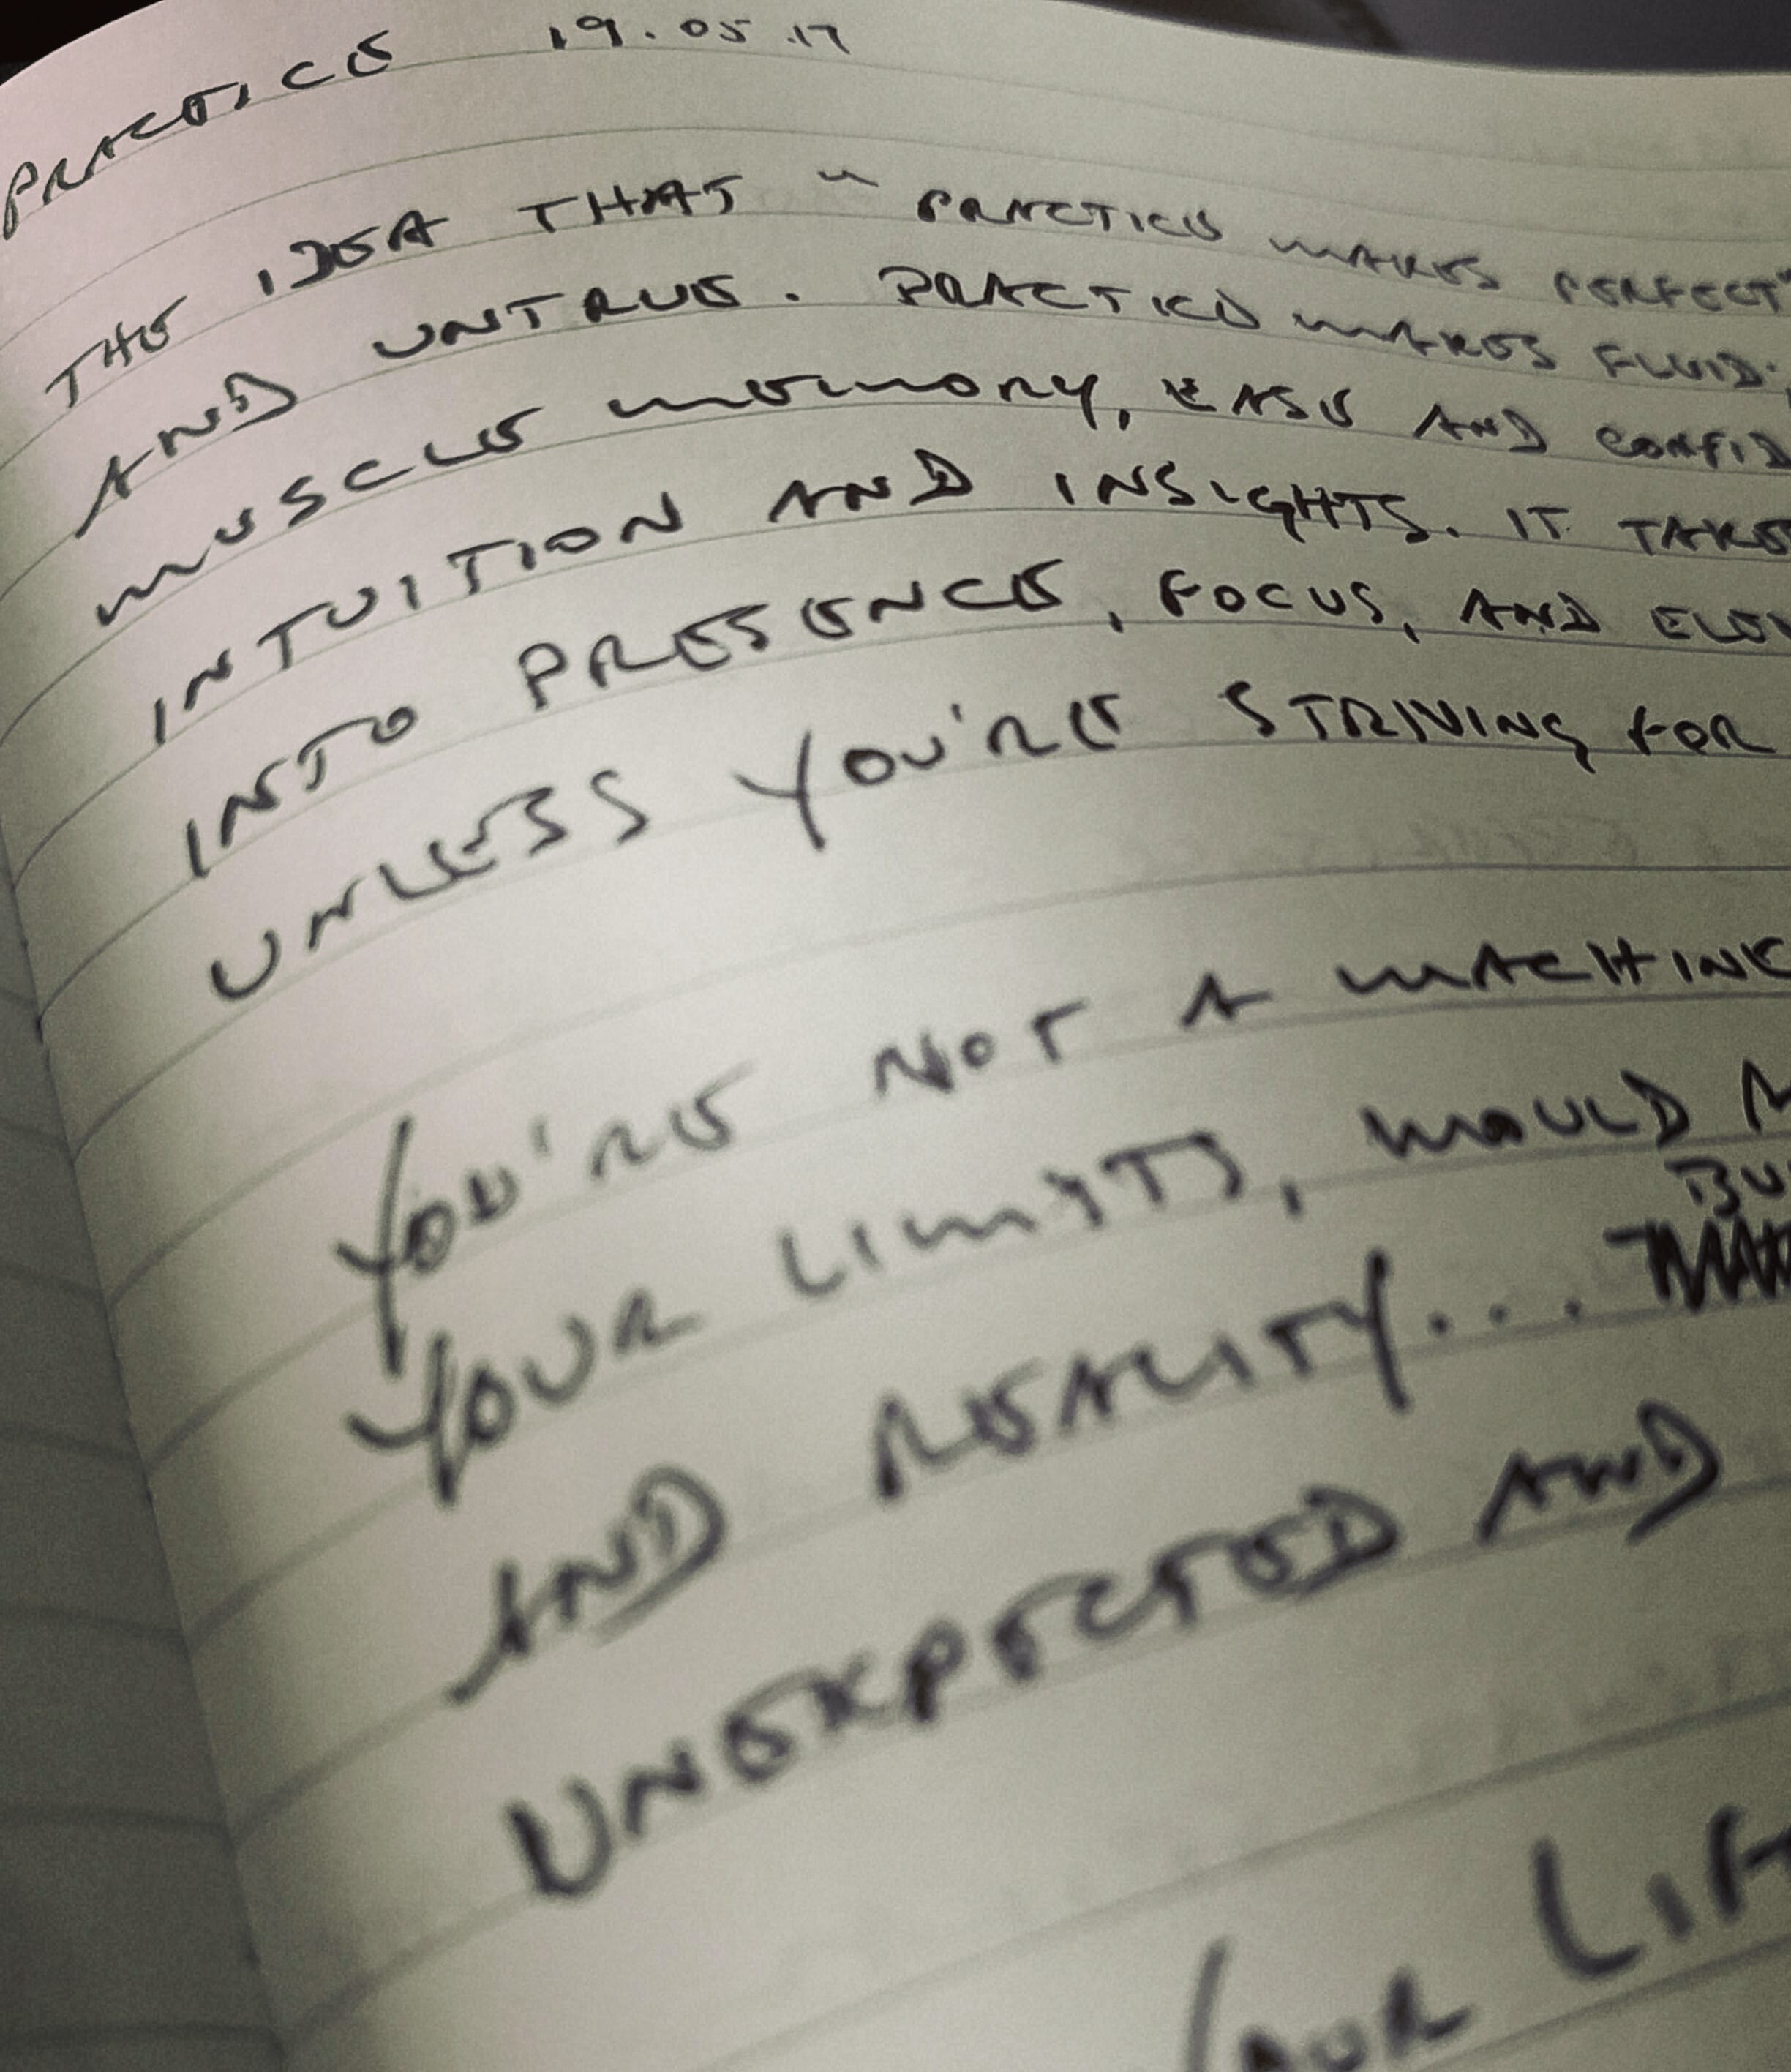 PRACTICE 19.05.17
THE IDEA THAT "PRACTICE MAKES PERFECT"
AND UNTRUE. PRACTICE MAKES FLUID.
MUSCLE MEMORY, EASE AND CONFID
INTUITION AND INSIGHTS. IT TAKE
INTO PRESENCE, FOCUS, AND
UNLESS YOU'RE STRIVING FOR
YOU'RE NOT A MACHINE
YOUR LIMITS, WOULD
BU
AND REALITY...
UNEXPECTED AND
YOUR LIF